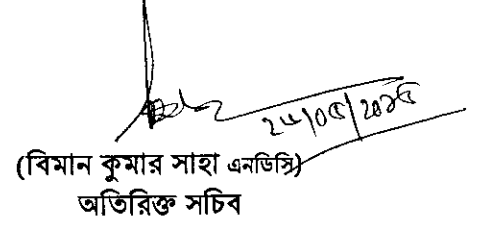 ২৮/০৫/২০২৫
(বিমান কুমার সাহা এনডিসি)
অতিরিক্ত সচিব